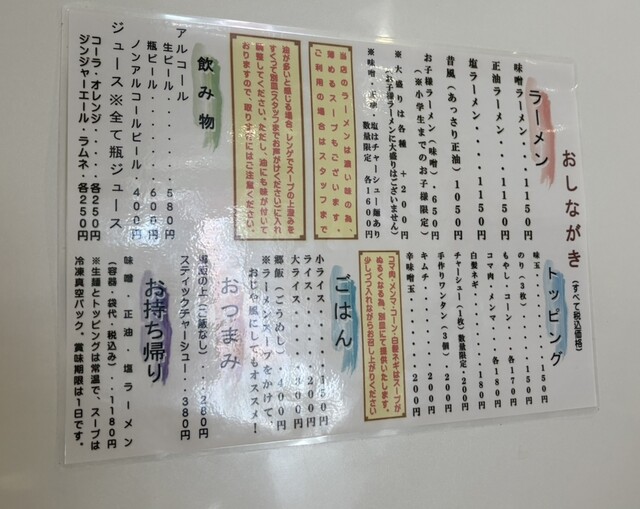 おしながき (すべて税込価格)
ラーメン
味噌ラーメン・・・・1150円
正油ラーメン・・・・1150円
塩ラーメン・・・・・1150円
昔風(あっさり正油)1050円
お子様ラーメン(味噌)・650円
(※小学生までのお子様限定)
※大盛りは各種 +200円
(お子様ラーメンに大盛りはございません)
※味噌・正油・塩はチャーシュー麺あり
数量限定 各1600円
当店のラーメンは濃い味の為、
薄めるスープもございます。
ご利用の場合はスタッフまで
油が多いと感じる場合、レンゲでスープの上澄みを
すくって別皿(スタッフまでお声がけください)に入れ
調整してください。ただし、油にも味が付いて
おりますので、取りすぎにはご注意ください。
飲み物
アルコール
生ビール・・・・・・580円
瓶ビール・・・・・・600円
ノンアルコールビール・400円
ジュース※全て瓶ジュース
コーラ・オレンジ・・・・各250円
ジンジャーエール・ラムネ・各250円
トッピング
味玉・・・・・・・・150円
のり(3枚)・・・・・150円
もやし・コーン・・各170円
コマ肉・メンマ・・各180円
白髪ネギ・・・・・・180円
チャーシュー(1枚)数量限定・200円
手作りワンタン(3個)・200円
キムチ・・・・・・・200円
辛味噌玉・・・・・・200円
コマ肉・メンマ・コーン・白髪ネギはスープが
ぬるくなる為、別皿にて提供いたします。
少しづつ入れながらお召し上がりください
ごはん
小ライス・・・・・150円
ライス・・・・・・200円
大ライス・・・・・300円
郷飯(ごうめし)・・400円
※ラーメンスープをかけて、
おじや風にしてもオススメ!
おつまみ
の上(ご飯なし)・・280円
スティックチャーシュー・380円
お持ち帰り
味噌 正油 塩ラーメン
(容器・袋代・税込み)・・1180円
※生麺とトッピングは常温で、スープは
冷凍真空パック。賞味期限は1日です。